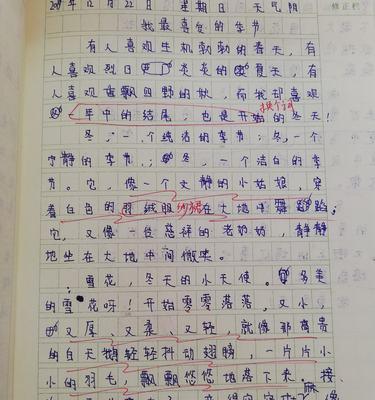 年12月22日 星期日 天气阴
我最喜欢的季节
有人喜欢生机勃勃的春天，有
人喜欢烈日炎炎的夏天，有
人喜欢重飘四野的秋，而我却喜欢
年中的结尾，也是开始的冬天！
换个词
冬，一个纯洁的季节；冬，一个
宁静的季节；冬，一个洁白的季
节。它，像一个文静的小姑娘，穿
着白色的羽绒服在大地中舞蹈
纱裙
它，又像一位慈祥的老奶奶，静静
地坐在大地中间微笑。
雪花，冬天的小天使。多美
的雪花呀！开始零零落落，又小，
又厚、又柔、又轻，就像那高贵
的白天鹅轻轻抖动翅膀，一片片小
小的羽毛，飘飘悠悠地落下来。接